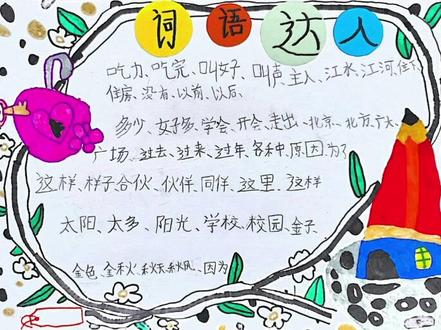 词语达人
吃力、吃完、叫好、叫声、主人、江水、江河、住下、
住房、没有、以前、以后、
多少、女子多、学会、开会、走出、北京、北方、广大、
广场、过去、过来、过年、各种、原因、为了
这样、样子、合伙、伙伴、同伴、这里、这样
太阳、太多、阳光、学校、校园、金子、
金色、金秋、秋天、秋风、因为、